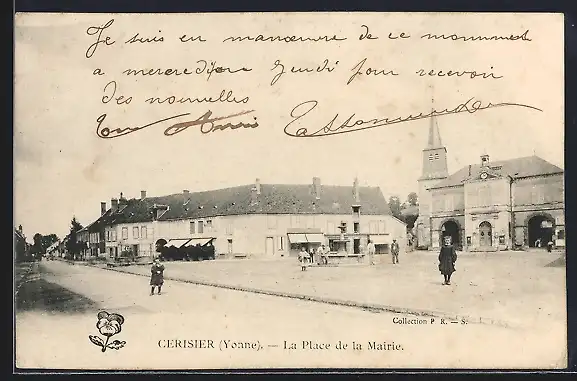 Je suis en manœuvre de ce moment
a mercredi ou Jeudi pour recevoir
des nouvelles
Ton Ami
Collection P. R. — S.
CERISIER (Yonne). — La Place de la Mairie.